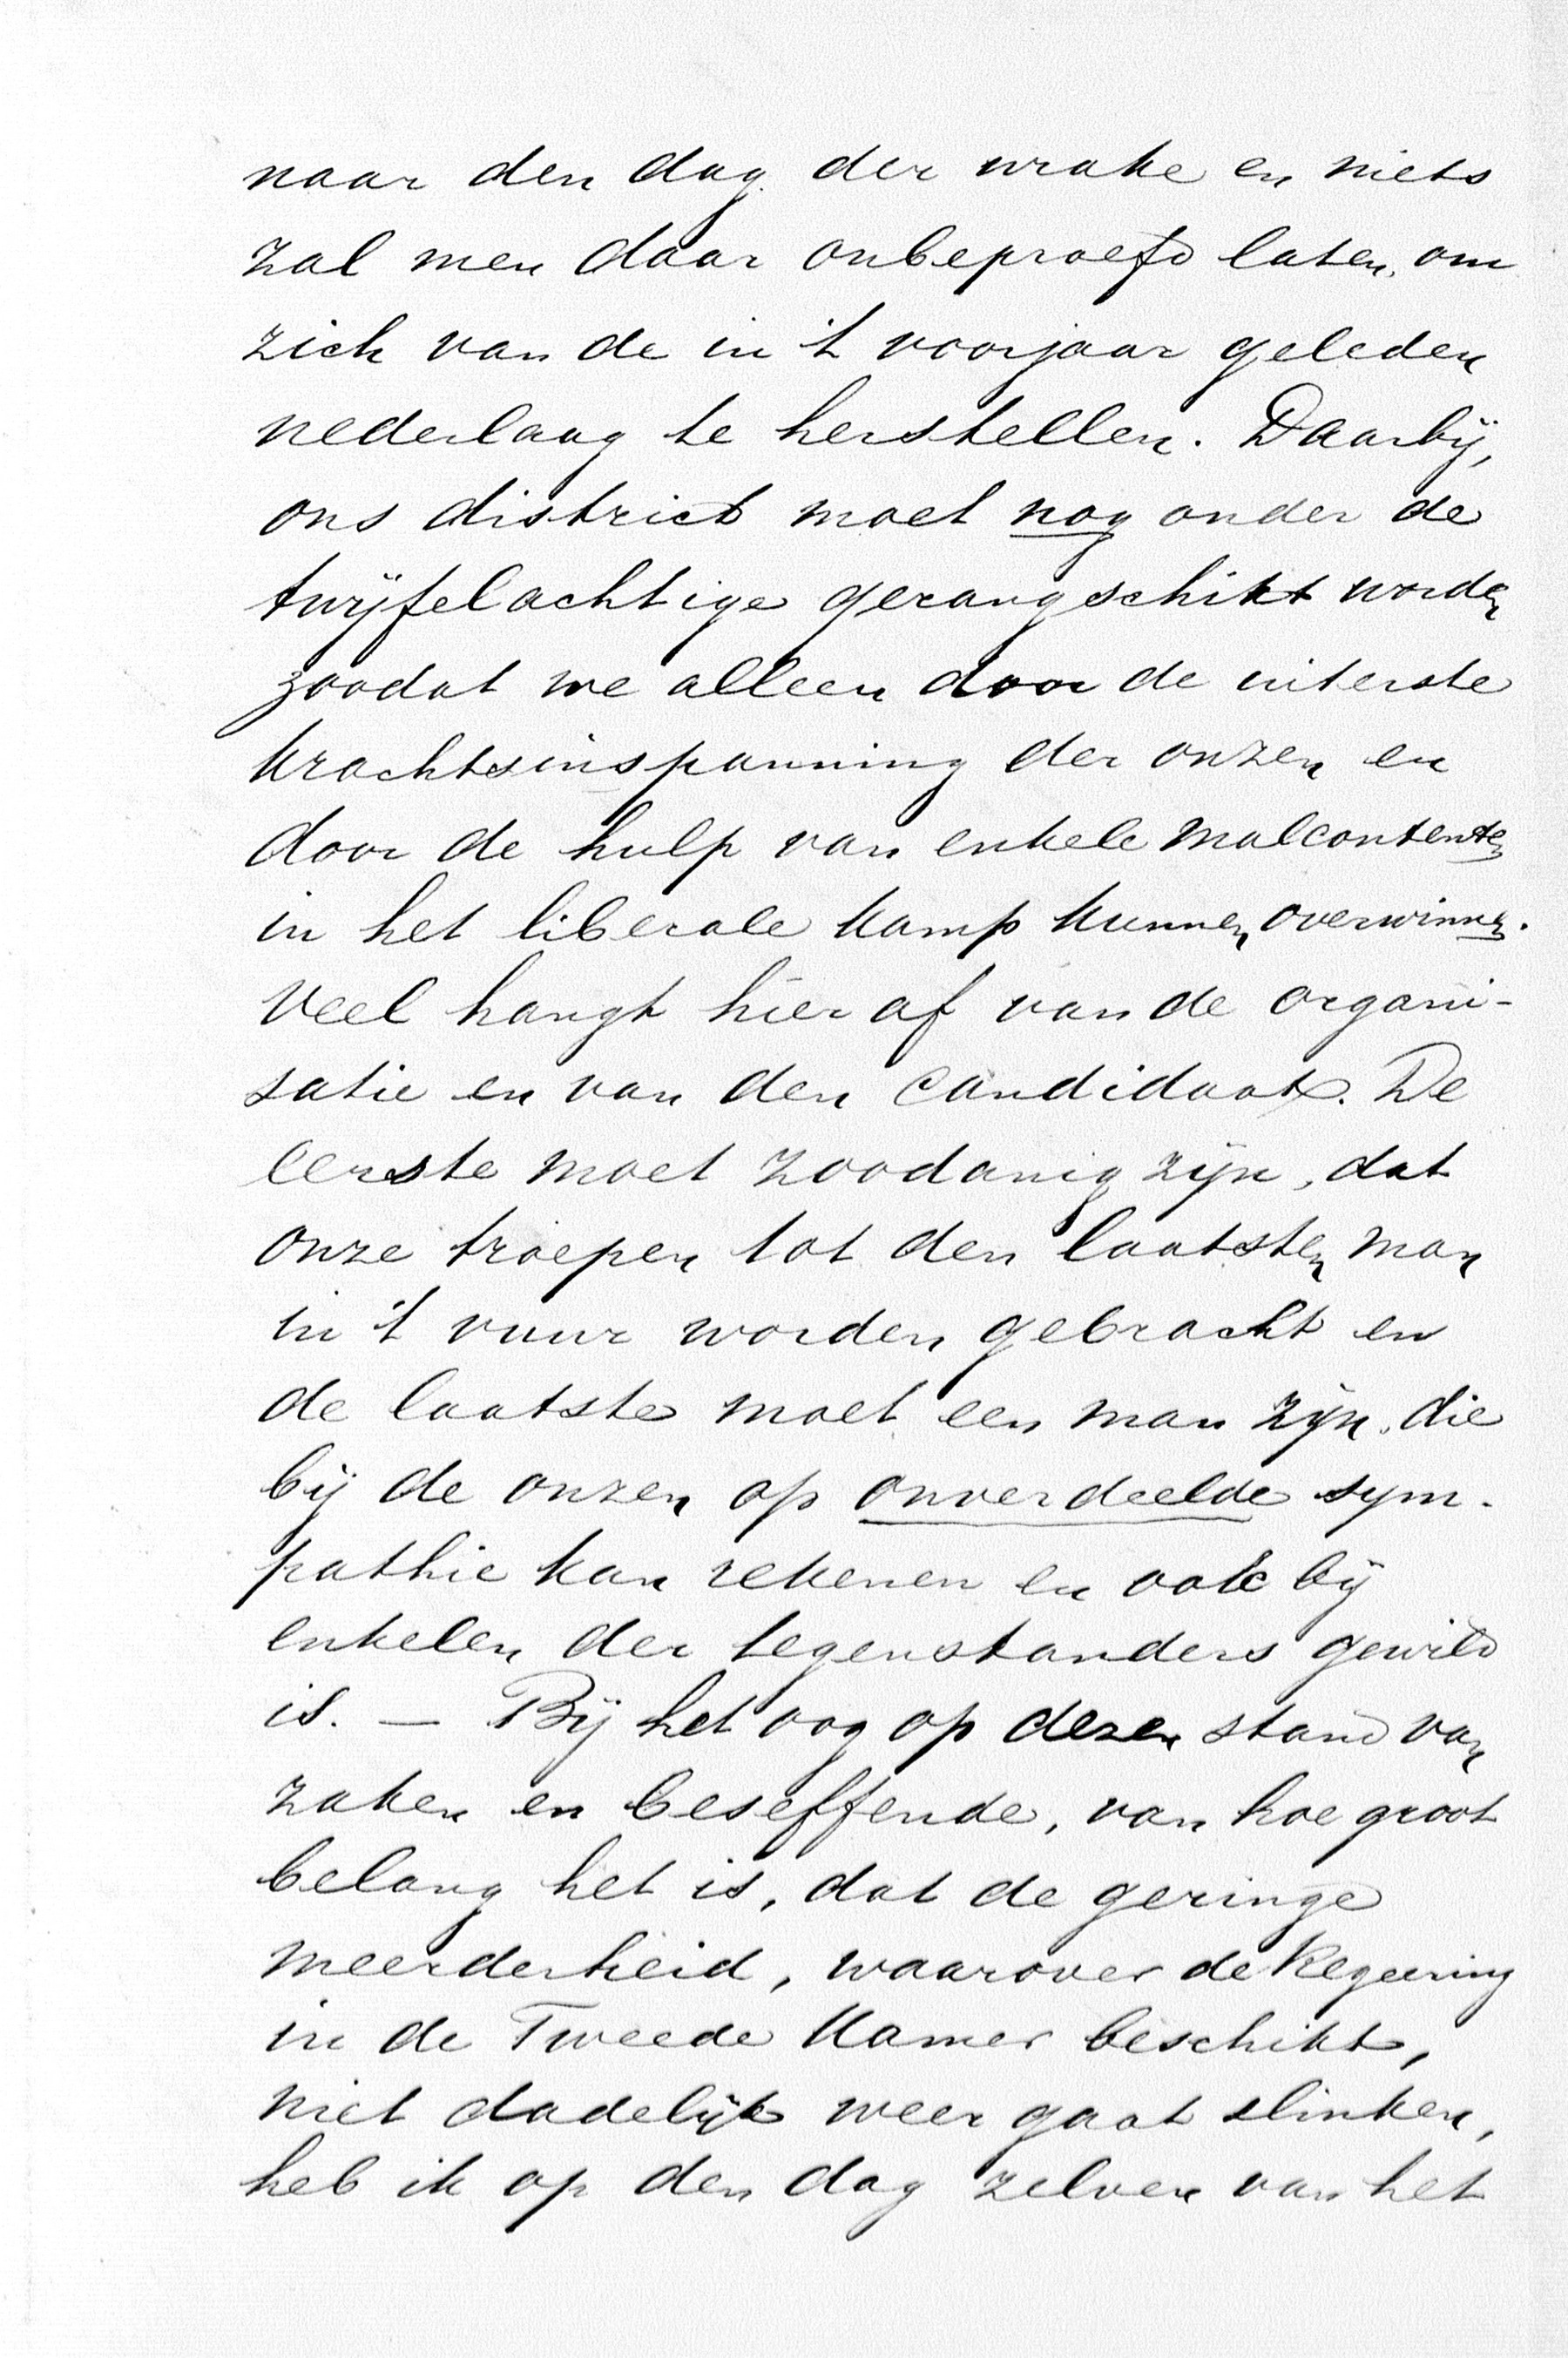 naar den dag der wrake en niets
zal men daar onbeproefd laten, om
zich van de in 't voorjaar geleden
nederlaag te herstellen. Daarbij,
ons district moet nog onder de
twijfelachtige gerangschikt worden
zoodat we alleen door de uiterste
krachtsinspanning der onzen en
door de hulp van enkele malcontenten
in het liberale kamp kunnen overwinnen.
Veel hangt hier af van de organi-
satie en van den candidaat. De
eerste moet zoodanig zijn, dat
onze troepen tot den laatsten man
in 't vuur worden gebracht en
de laatste moet een man zijn, die
bij de onzen op onverdeelde sym-
pathie kan rekenen en ook bij
enkelen der tegenstanders gewild
is. — Bij het oog op dezen stand van
zaken en beseffende, van hoe groot
belang het is, dat de geringe
meerderheid, waarover de Regeering
in de Tweede Kamer beschikt,
niet dadelijk weer gaat slinken,
heb ik op den dag zelven van het